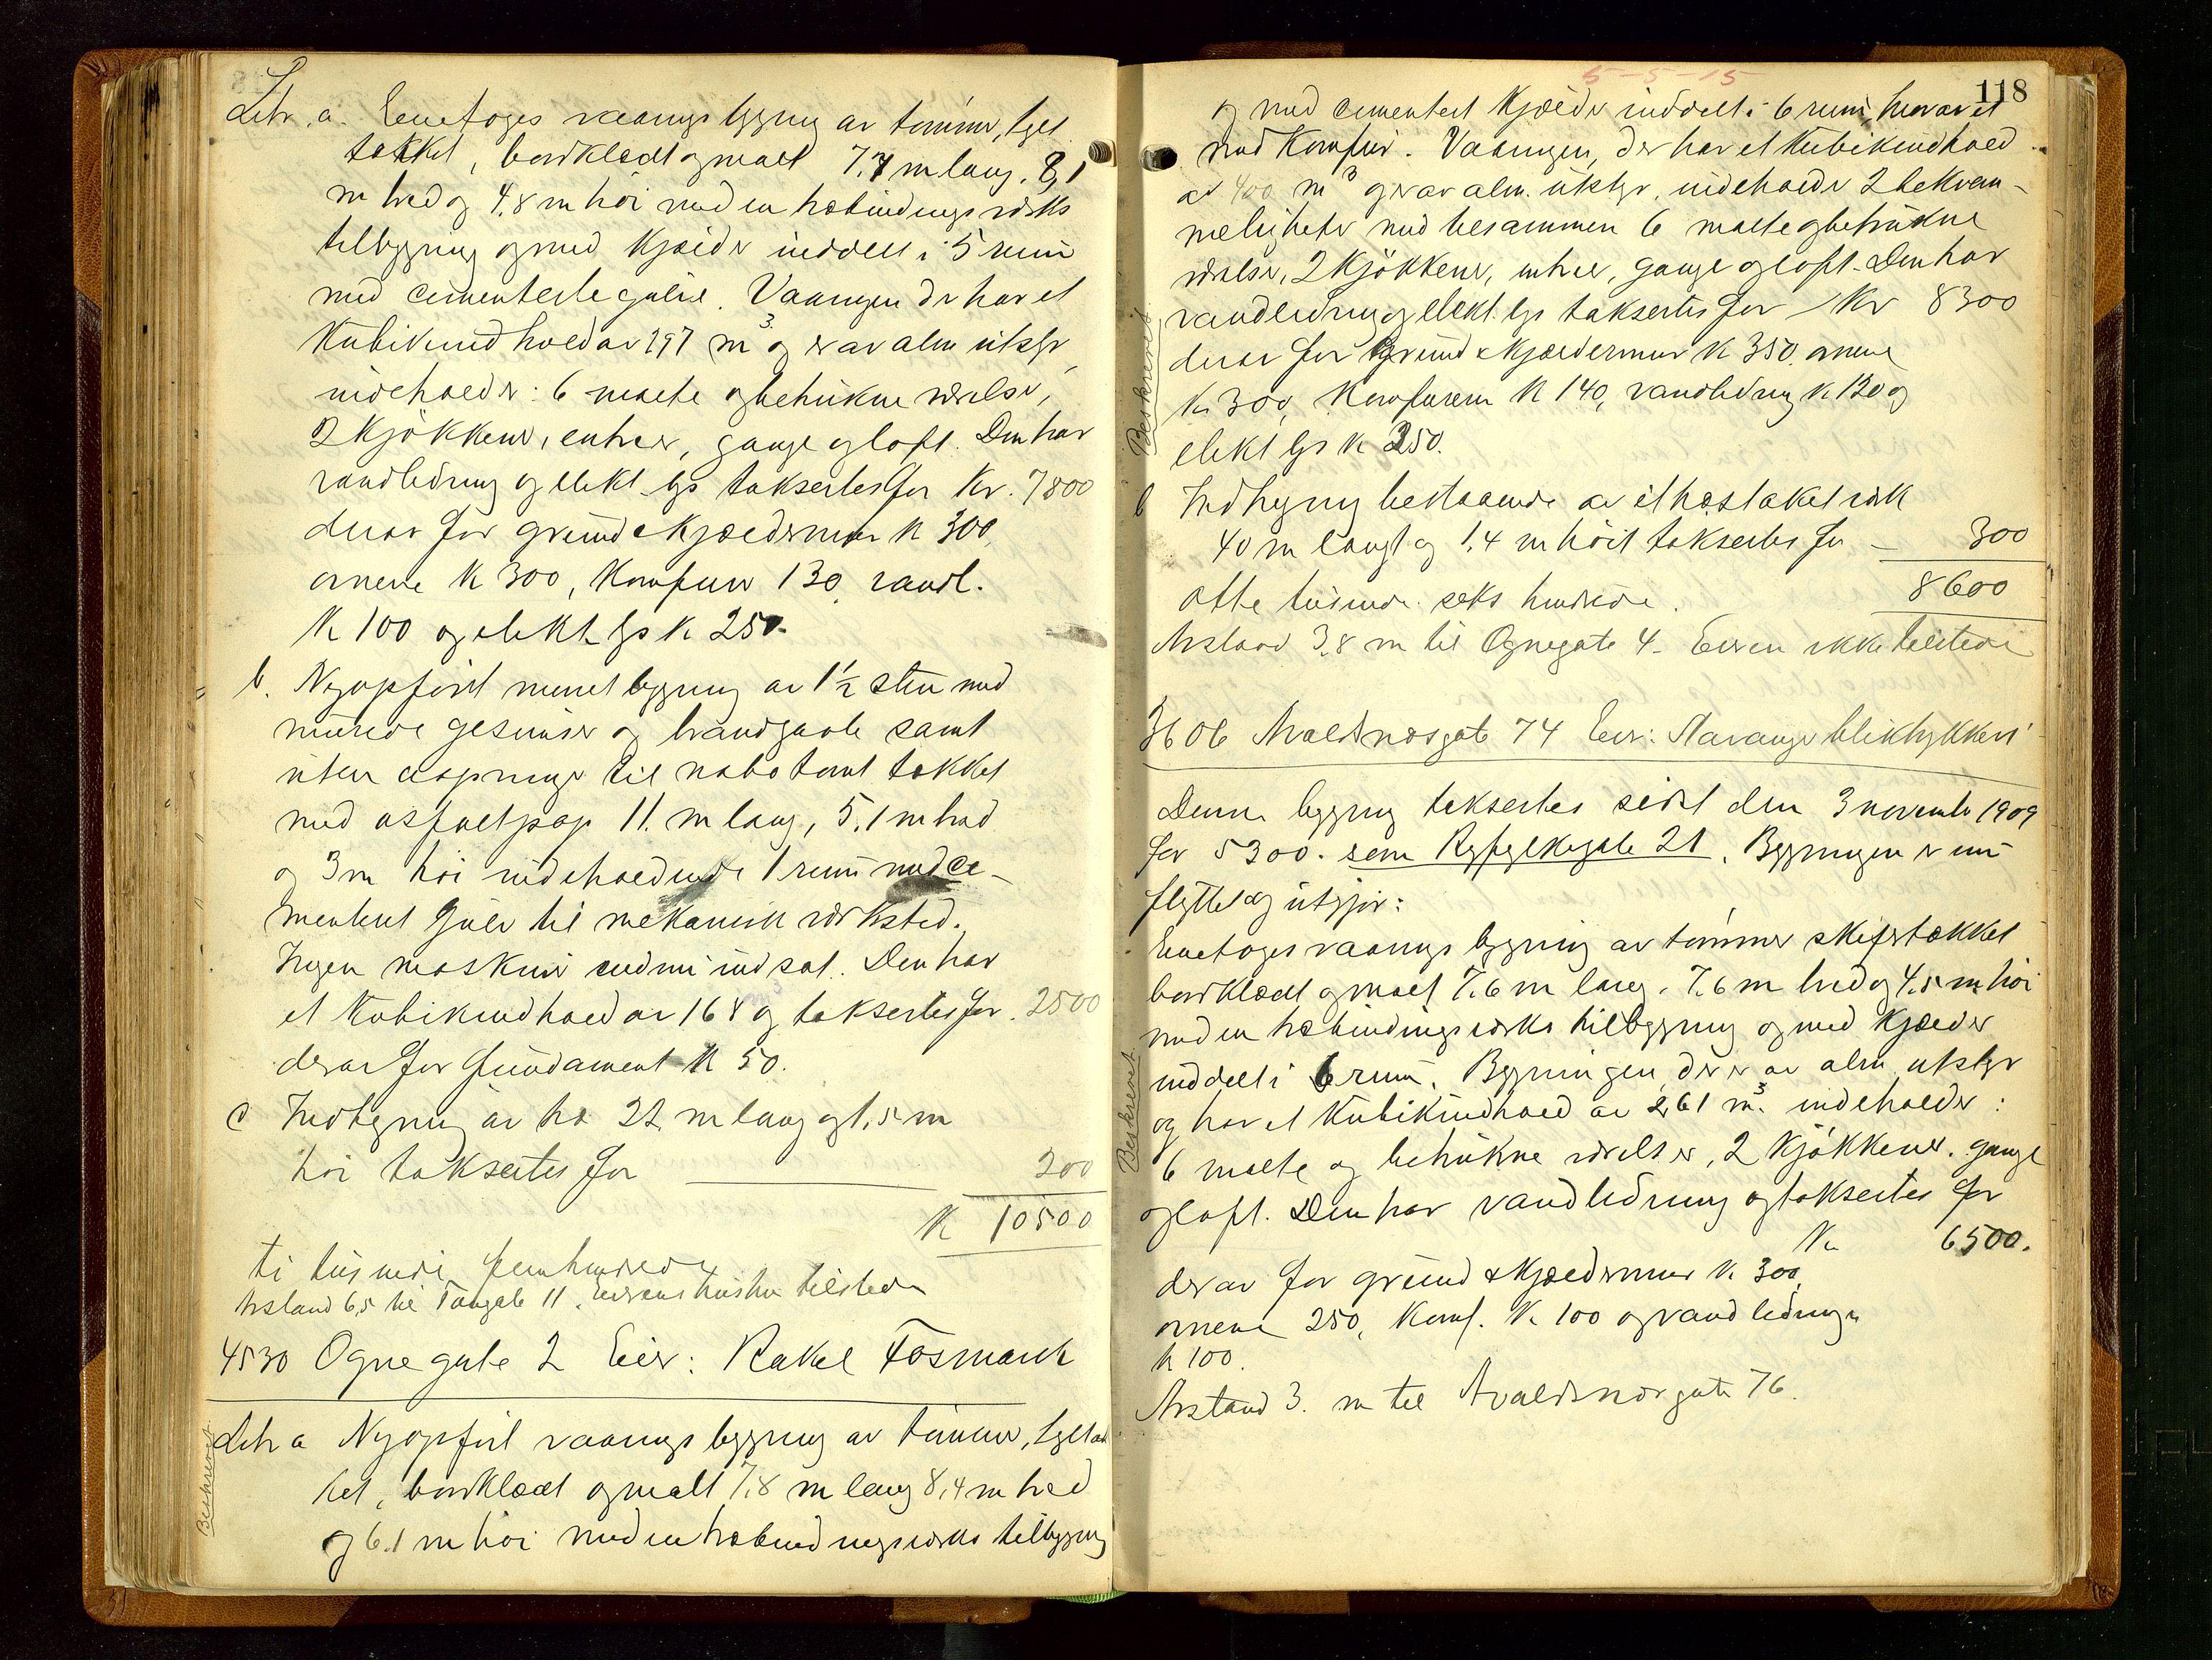 Litr. a. Eenetages vaaningsbygning av tømmer, tegl
tækket, bordklædt og malt 7,7 m lang, 8,1
m bred og 4,8 m høi med en træbindingsverks
tilbygning og med kjælder inddelt i 5 rum
med cementerte gulve. Vaaningen der har et
Kubikindhold av 297 m3 og er av alm utstyr,
indeholder: 6 malte og betrukne værelser,
2 kjøkkener, entreer, gange og loft. Den har
vandledning og elekt. lys takseertes for Kr. 7800
derav for grund & kjældermur k 300,
ovnene k 300, komfurer 130, vandl.
K 100 og elekt. lys k 250.
b. Nyopført muret bygning av 1½ sten med
murede gesimser og brandgavle samt
uten aapninger til nabotomt tækket
med asfaltpap 11. m lang, 5,1 m bred
og 3 m høi indeholdende 1 rum med ce-
mentert gulv til mekanisk verksted.
Ingen maskiner endnu indsat. Den har
et Kubikindhold av 168 m3 og takseertes for. 2500
derav for fundament K 50.
c Indhegning av træ 22 m lang og 1,5 m
høi takseertes for 200
K 10500
ti tusinde femhundrede
Avstand 6,5 til Tangate 11. Eierens hustru tilstede
4530 Ognegate 2 Eier: Rakel Fosmark
Beskrevet
Litr a Nyopført vaaningsbygning av tømmer, tegltæk
ket, bordklædt og malt 7,8 m lang 8,4 m bred
og 6.1 m høi med en træbindingsverks tilbygning
5-5-15
118
og med cementert kjælder inddelt i 6 rum, hvorav et
med Komfur. Vaaningen, der har et Kubikindhold
av 400 m3 og er av alm. utstyr, indeholder 2 bekvem-
meligheter med tilsammen 6 malte og betrukne
værelser, 2 kjøkkener, entreer, gange og loft. Den har
vandledning og elekt. lys takseertes for Kr 8300
derav for grund & kjældermur k 350, ovnene
k 300, Komfurene K 140, vandledning k 130 og
elekt lys k 250.
Beskrevet
b Indhegning bestaaende av et træstaketverk
40 m langt og 1,4 m høit takseertes for – 300
8600
Otte tusinde seks hundrede.
Avstand 3,8 m til Ognegate 4. Eieren ikke tilstede
360b Avaldsnesgate 74 Eier: Stavanger bliktrykkeri
Denne bygning takseertes sidst den 3 november 1909
for 5300. som Ryfylkegate 21. Bygningen er nu
flyttet og utgjør:
Enetages vaaningsbygning av tømmer skifertækket
bordklædt og malt 7,6 m lang, 7,6 m bred og 4,5 m høi
med en træbindingsverks tilbygning og med kjælder
inddelt i 6 rum. Bygningen, der er av alm utstyr
og har et Kubikindhold av 261 m3. indeholder:
Beskrevet
6 malte og betrukne værelser, 2 kjøkkener, gange
og loft. Den har vandledning og takseertes for
Kr 6500.
derav for grund & kjældermur k. 300,
ovnene 250, komf. K 100 og vandledningen
k 100.
Avstand 3. m til Avaldsnesgate 76.